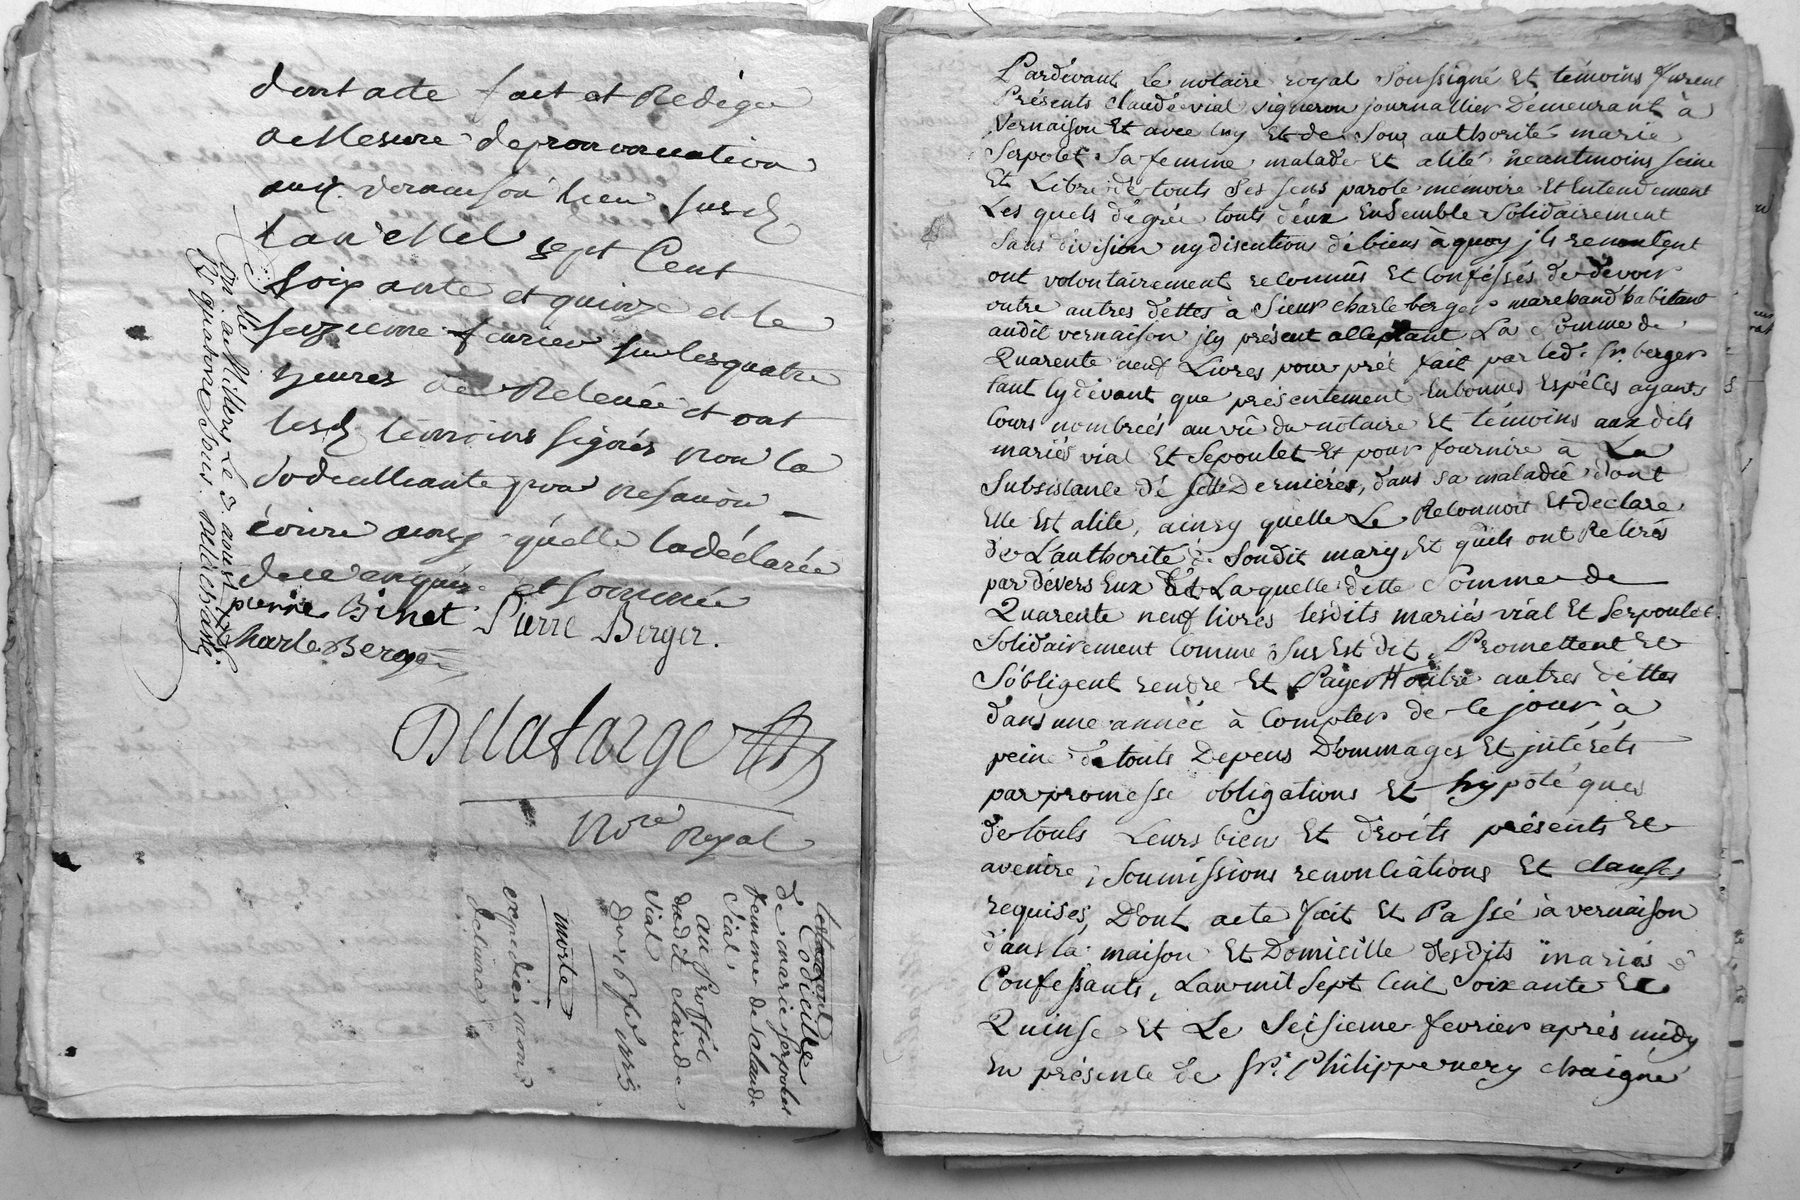 dont acte fait et Redigé
a Mesure de prononciation
aux. vernaison lieu susd.
L'an Mil sept Cent
soixante et quinze et le
seizieme fevrier sur les quatre
heures de Relevée et ont
lesd. temoins signés non la
codicillante pour ne savoir
écrire ainsy qu'elle la déclarée
de ce enquise et sommée
pierre Binet Pierre Berger.
Charle Berger
Dellafarge
No.re Royal
Con.llé a Millery le 3. aoust 1775.
R. quatorze sous.
testament
Codicille
de marie serpolet
femme de Claude
vial
au proffit
dudit claude
vial
du 16 f.er 1775
morte
expedié moins
declaré
Pardevant Le notaire royal Soussigné Et témoins furent
Présents claude vial vigneron journallier Demeurant à
vernaison Et avec luy Et de Son authorité marie
Serpolet Sa femme malade Et alité néantmoins seine
Et Libre de touts Ses sens parole mémoire Et Entendement
Les quels dégrée touts deux Ensemble Solidairement
Sans division ny discution de biens à quoy ils renontent
ont volontairement reconnus Et Confessés de devoir
outre autres dettes à Sieur charle berger marchand habitant
audit vernaison jcy présent acceptant La Somme de
Quarente neuf Livres pour prét fait par led. Sr. berger
tant cy devant que présentement En bonnes Espéces ayants
Cours nombreés au vû du notaire Et témoins aux dits
mariés vial Et Sepoulet Et pour fournire à La
Subsistance de Cette Derniére, dans sa maladie dont
Elle Est alité, ainsy quelle Le Reconnoit Et declare
de L'authorité de Sondit mary, Et quils ont Retirés
par dévers Eux Et La quelle dette Somme de
Quarente neuf livres lesdits mariés vial Et Serpoulet
Solidairement Comme Sus Est dit, Promettent Et
S'obligent rendre Et Payer outre autres dettes
dans une année à Compter de ce jour à
peine de touts Depens Dommages Et jntéréts
par promesse obligations Et hypotéques
de touts Leurs biens Et droits présents Et
avenire, Soumissions renontiations Et clauses
requises, Dont acte fait Et Passé à vernaison
dans la maison Et Domicille desdits mariés
Confessants, L'an mil Sept Cent Soixante Et
Quinse Et Le Seisieme fevrier aprés midy
En présence de Sr. Philippe nery chaigne